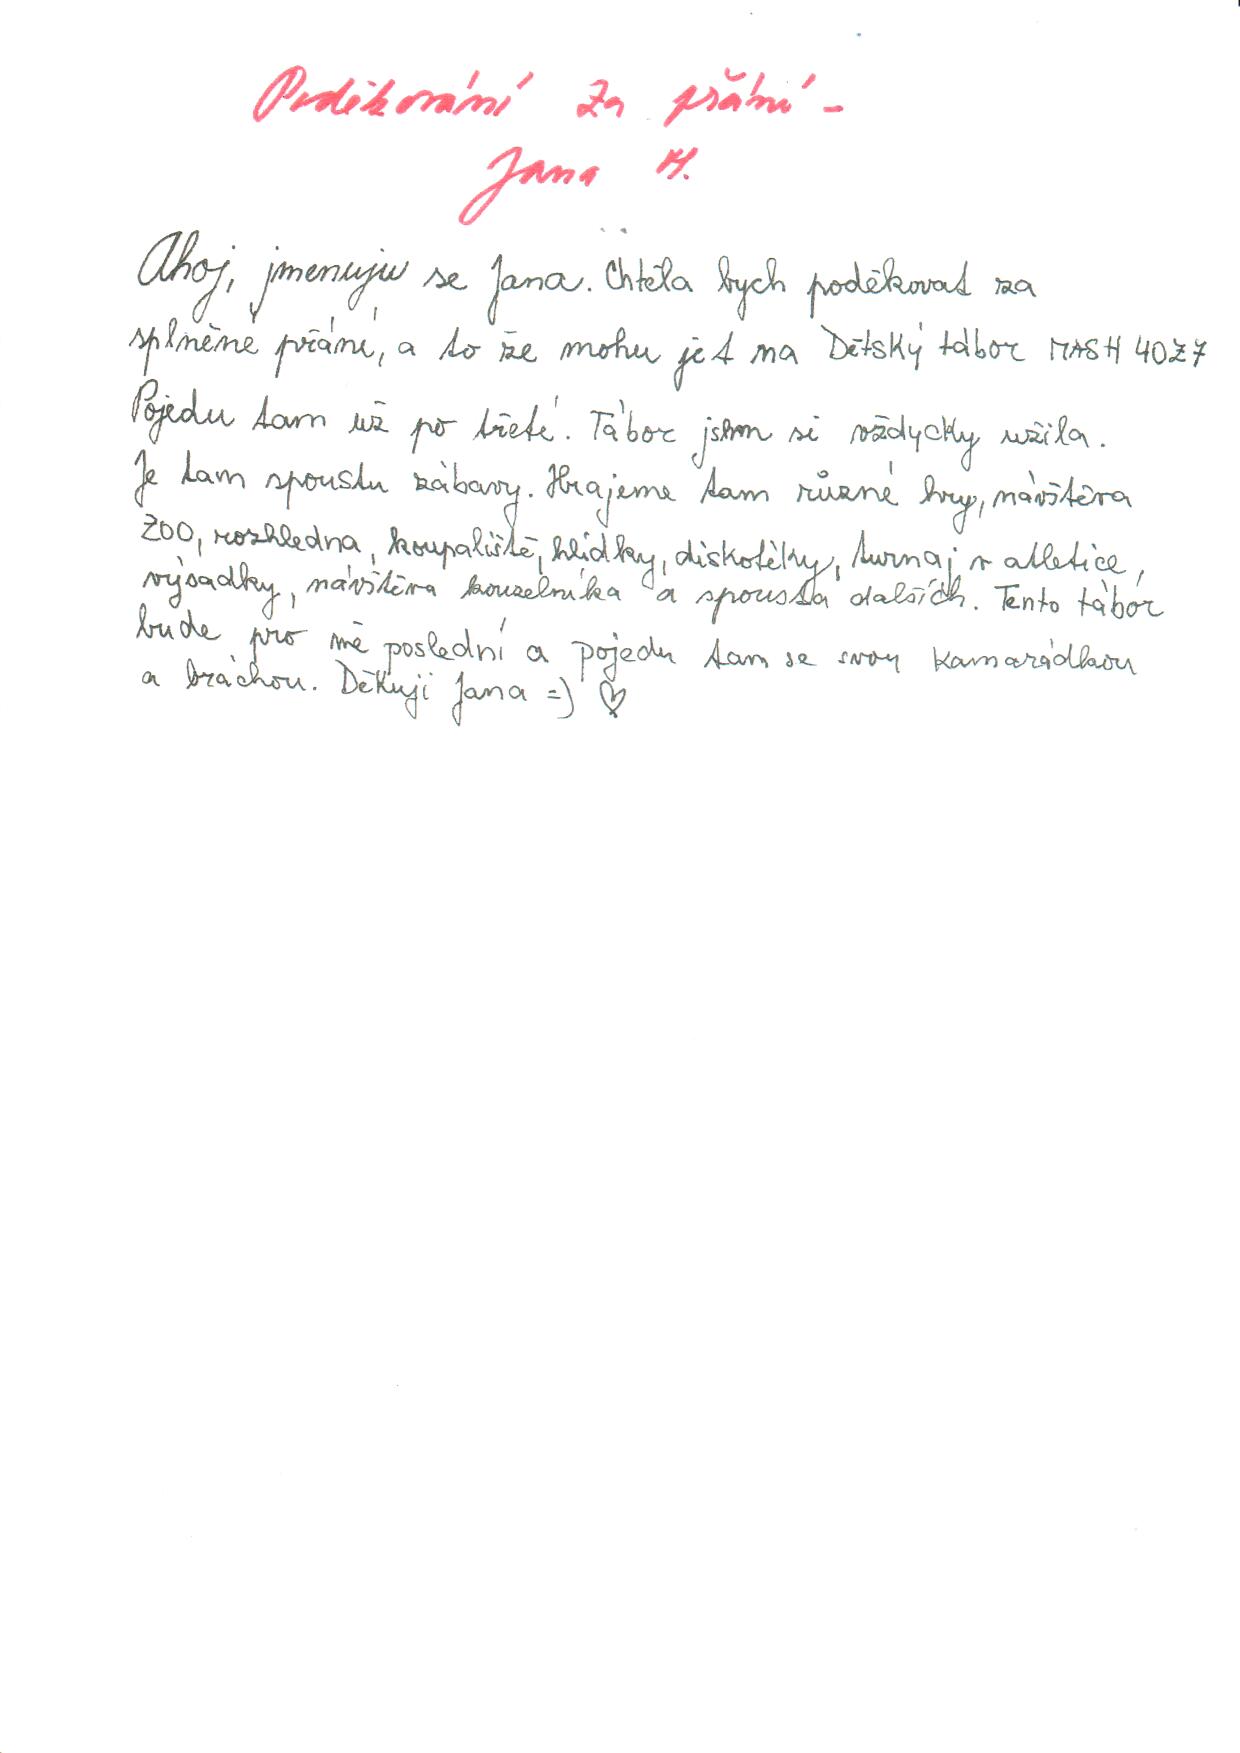 Poděkování za přání -
Jana H.
Ahoj, jmenuju se Jana. Chtěla bych poděkovat za
splněné přání, a to že mohu jet na Dětský tábor MASH 4027
Pojedu tam už po třetí. Tábor jsem si vždycky užila.
Je tam spoustu zábavy. Hrajeme tam různé hry, návštěva
ZOO, rozhledna, koupaliště, hlídky, diskotéky, turnaj v atletice,
výsadky, návštěva kouzelníka a spousta dalších. Tento tábor
bude pro mě poslední a pojedu tam se svou kamarádkou
a bráchou. Děkuji Jana =) ♡